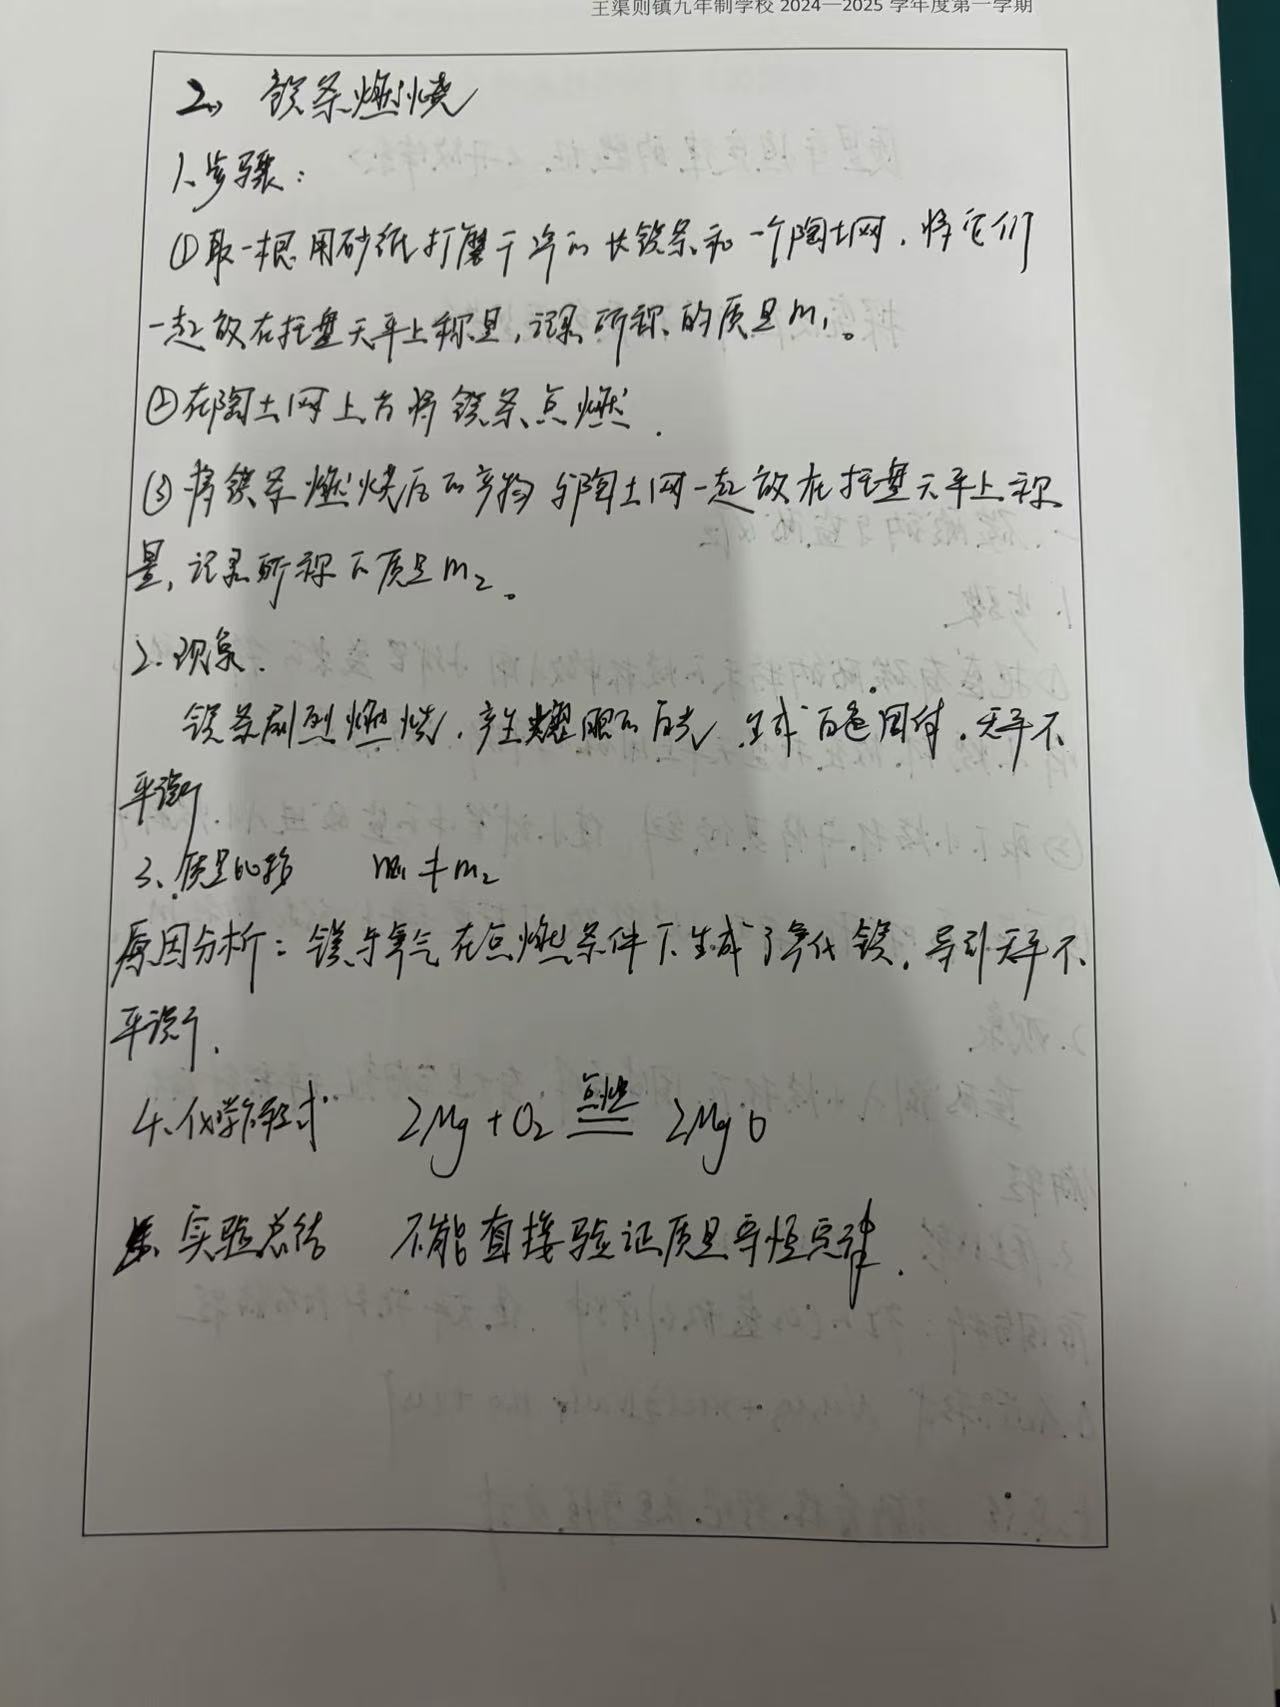 王渠则镇九年制学校 2024—2025 学年度第一学期
2、镁条燃烧
1、步骤：
①取一根用砂纸打磨干净的长镁条和一个陶土网，将它们
一起放在托盘天平上称量，记录所称的质量m₁。
②在陶土网上方将镁条点燃.
③将镁条燃烧后的产物与陶土网一起放在托盘天平上称
量，记录所称的质量m₂。
2.现象.
镁条剧烈燃烧，产生耀眼的白光，生成白色固体，天平不
平衡
3、质量比较 m₁≠m₂
原因分析：镁与氧气在点燃条件下生成了氧化镁，导引天平不
平衡.
4、化学方程式 2Mg+O₂ 点燃 2MgO
5、实验总结 不能直接验证质量守恒定律.